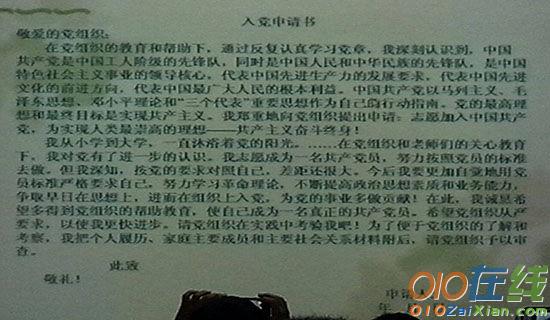 入党申请书
敬爱的党组织：
在党组织的教育和帮助下，通过反复认真学习党章，我深刻认识到，中国
共产党是中国工人阶级的先锋队，同时是中国人民和中华民族的先锋队，是中国
特色社会主义事业的领导核心，代表中国先进生产力的发展要求，代表中国先进
文化的前进方向，代表中国最广大人民的根本利益。中国共产党以马列主义、毛
泽东思想、邓小平理论和“三个代表”重要思想作为自己的行动指南。党的最高理
想和最终目标是实现共产主义。我郑重地向党组织提出申请：志愿加入中国共产
党，为实现人类最崇高的理想——共产主义奋斗终身！
我从小学到大学，一直沐浴着党的阳光。……在党组织和老师们的关心教育
下，我对党有了进一步的认识。我志愿成为一名共产党员，努力按照党员的标准
去做。但我深知，按党的要求对照自己，差距还很大。今后我要更加自觉地用党
员标准严格要求自己，努力学习革命理论，不断提高政治思想素质和业务能力，
争取早日在思想上，进而在组织上入党，为党的事业多做贡献！在此，我诚恳希
望多得到党组织的帮助教育，使自己成为一名真正的共产党员。希望党组织从严
要求，以使我更快进步。请党组织在实践中考验我吧！为了便于党组织的了解和
考察，我把个人履历、家庭主要成员和主要社会关系材料附后，请党组织予以审
查。
此致
敬礼！
申请人
年
010在线
010ZaiXian.com